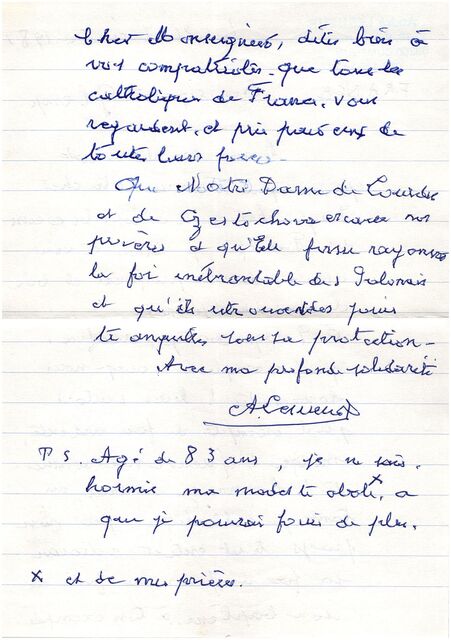 Cher Monseigneur, dites bien à
vos compatriotes que tous les
catholiques de France, vous
regardent, et prie pour eux de
toutes leurs forces.
Que Notre Dame de Lourdes
et de Czestochowa exauce nos
prières et qu'Elle fasse rayonner
la foi inébranlable des Polonais
et qu'ils
sous sa protection.
Avec ma profonde solidarité
P S. Agé de 83 ans, je ne sais,
hormis ma modeste obole x, ce
que je pourrais faire de plus.
x et de mes prières.